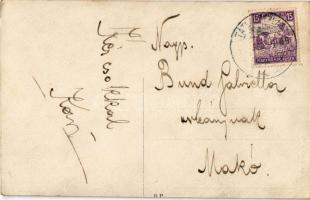 Kézcsókkal
Nagys.
Bund Gabriella
urleánynak
Makó.
15 15
MAGYAR KIR. POSTA